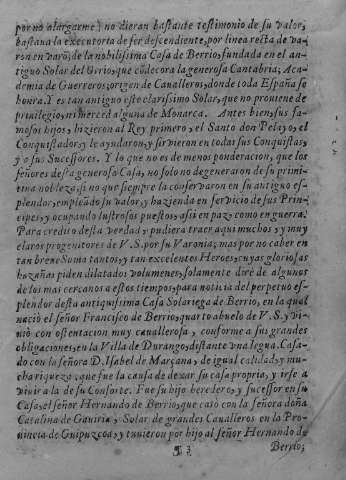 por no alargarme) no dieran bastante testimonio de su valor,
bastaua la executoria de ser descendiente, por linea recta de va-
ron en varõ, de la nobilissima Casa de Berrio, fundada en el an-
tiguo Solar del Vrrio, que cõdecora la generosa Cantabria; Aca-
demia de Guerreros; origen de Caualleros, donde toda España se
honra. Y es tan antiguo este clarissimo Solar, que no prouiene de
priuilegio, ni merced alguna de Monarca. Antes bien, sus fa-
mosos hijos, hizieron al Rey primero, el Santo don Pelayo, el
Conquistador, y le ayudaron, y siruieron en todas sus Conquistas,
y a sus Sucessores. Y lo que no es de menos ponderacion, que los
señores desta generosa Casa, no solo no degeneraron de su primi-
tiua nobleza, si no que siempre la conseruaron en su antiguo es-
plendor, empleãdo su valor, y hazienda en seruicio de sus Prin-
cipes, y ocupando lustrosos puestos, assi en paz, como en guerra.
Para credito desta verdad, pudiera traer aqui muchos, y muy
claros progenitores de V. S. por su Varonia; mas por no caber en
tan breue Soma tantos, y tan excelentes Heroes, cuyas gloriosas
hazañas piden dilatados volumenes, solamente dirè de algunos
de los mas cercanos a estos tiempos, para noticia del perpetuo es-
plendor desta antiquissima Casa Solariega de Berrio, en la qual
naciò el señor Francisco de Berrio, quarto abuelo de V. S. y vi-
uiò con ostentacion muy cauallerosa, conforme a sus grandes
obligaciones, en la Villa de Durango, distante vna legua. Casa-
do con la señora D. Isabel de Marçana, de igual calidad, y mu-
cha riqueza, que fue la causa de dexar su casa propria, y irse a
viuir a la de su Consorte. Fue su hijo heredero, y sucessor en su
Casa, el señor Hernando de Berrio, que casò con la señora doña
Catalina de Gauiria, y Solar de grandes Caualleros en la Pro-
uincia de Guipuzcoa, y tuuieron por hijo al señor Hernando de
¶ 3 Berrio,